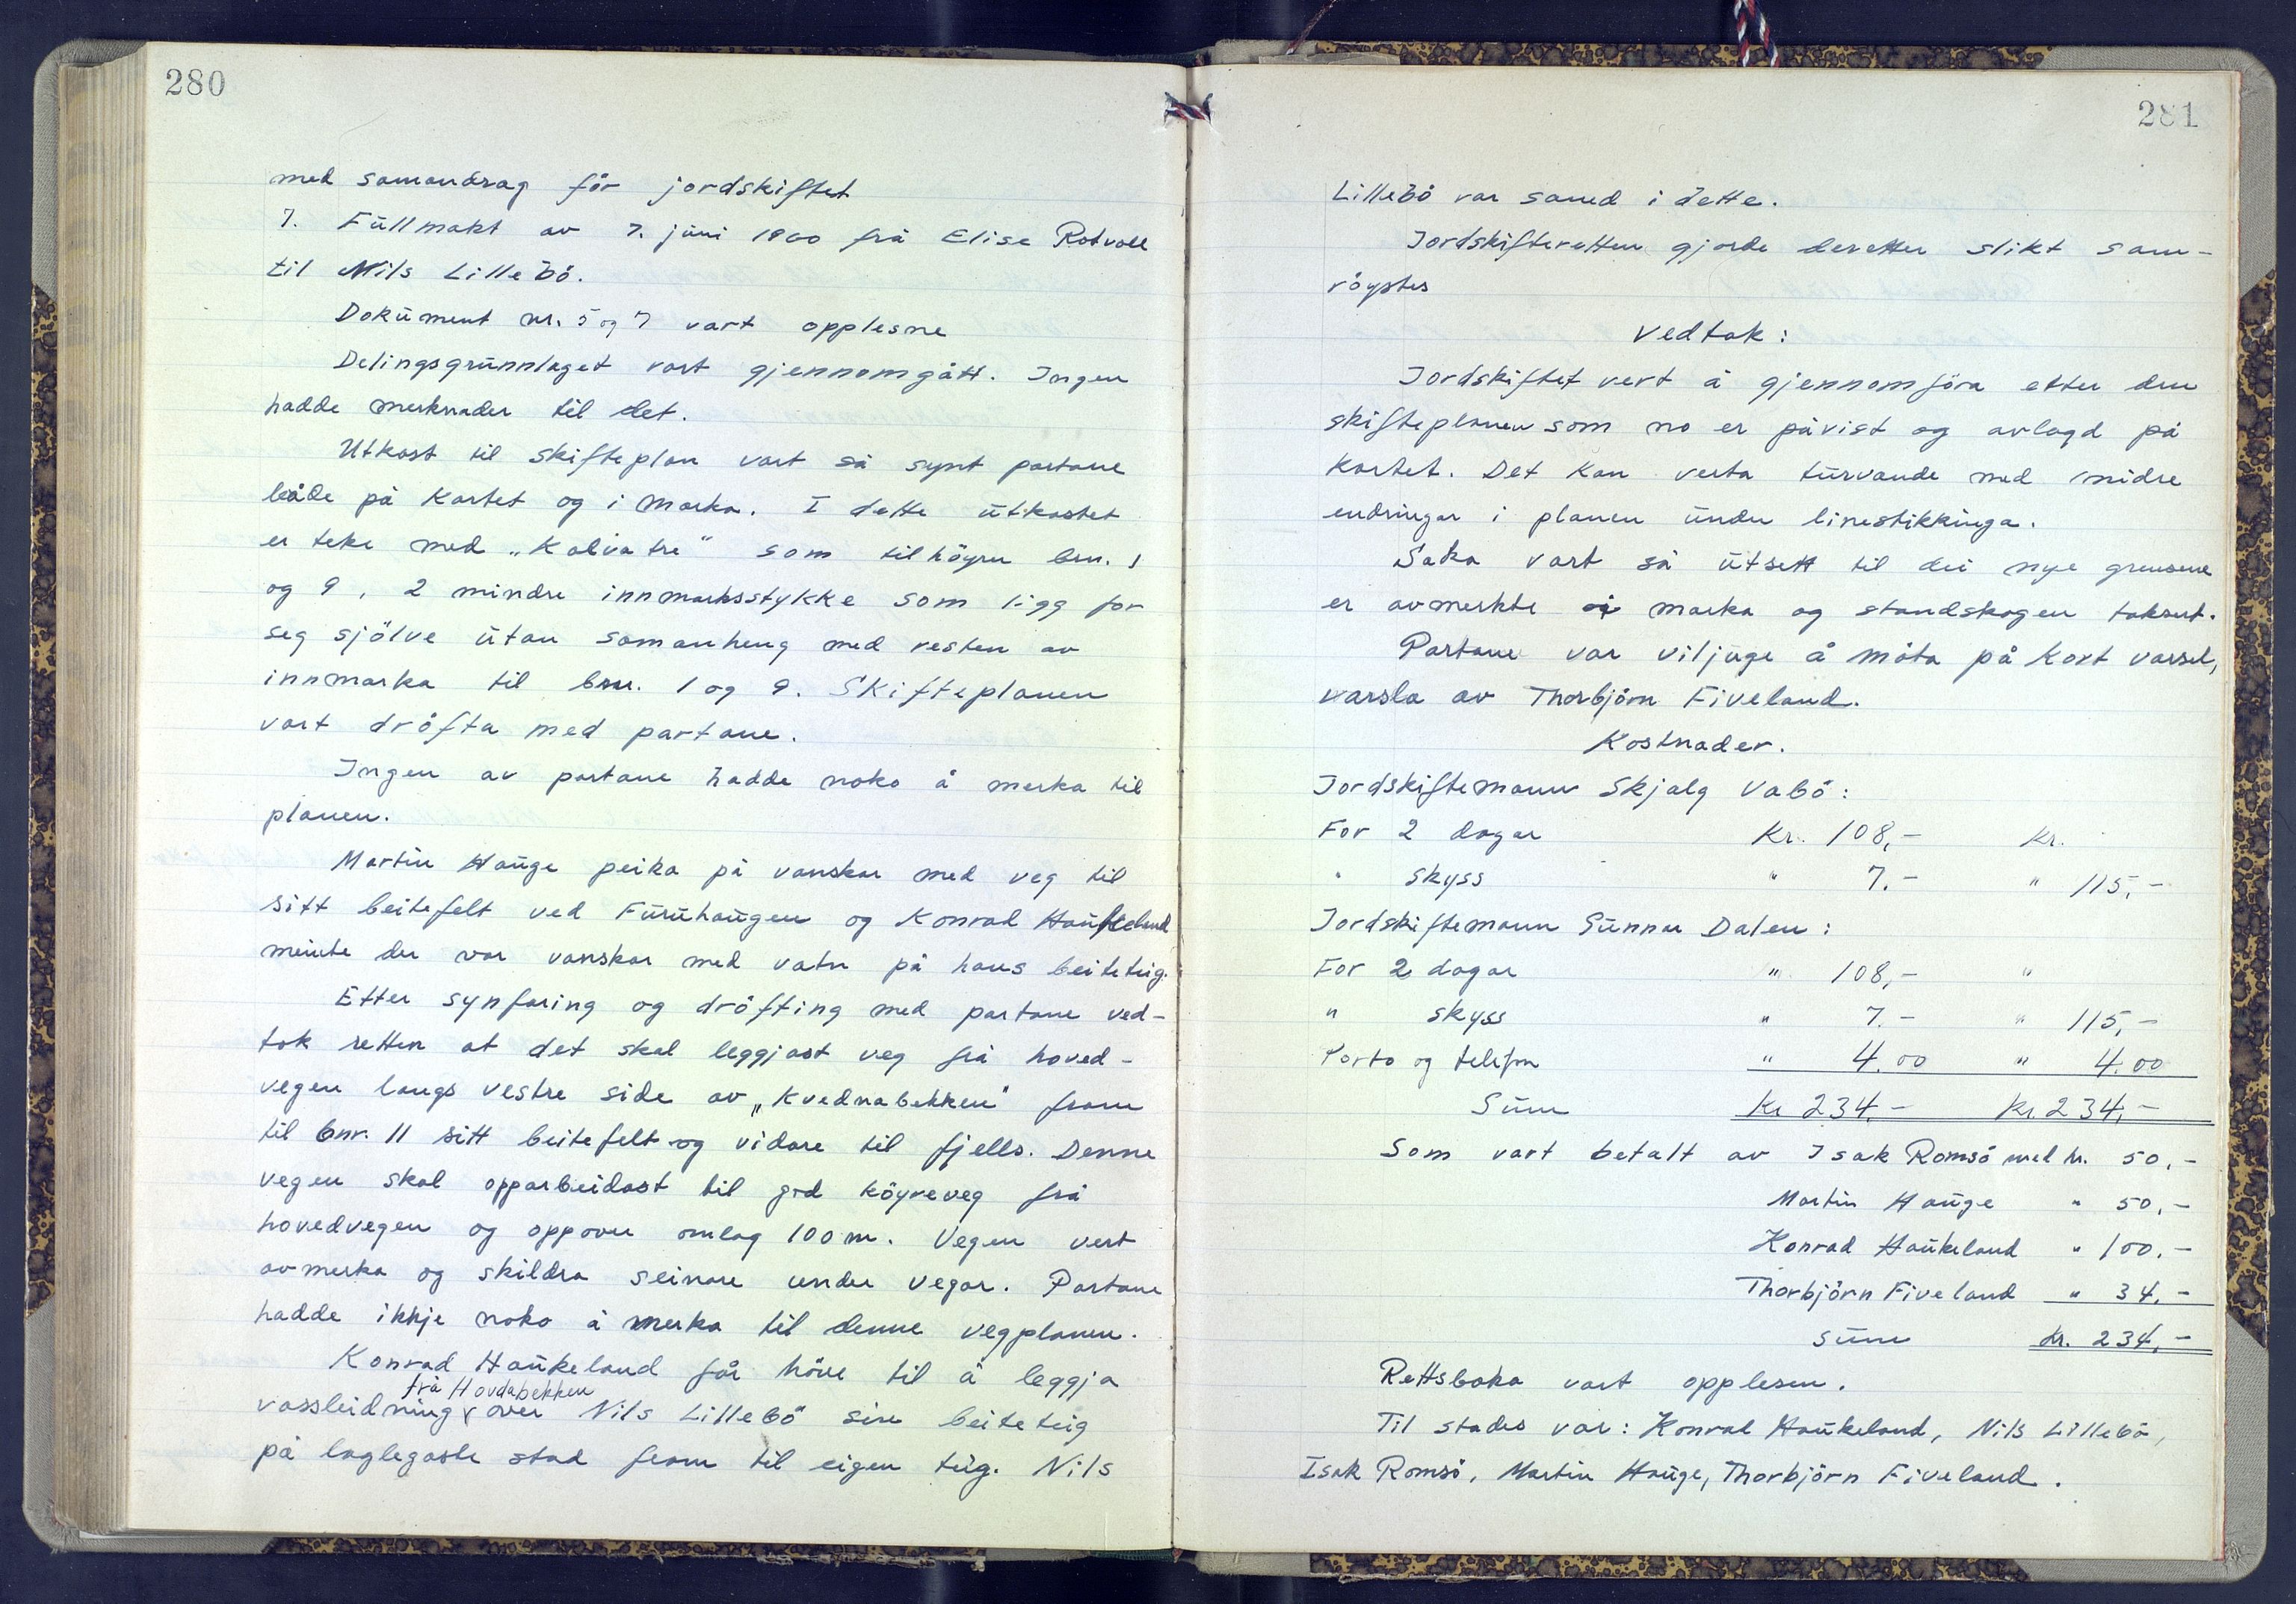 280
med samandrag før jordskiftet
7. Fullmakt av 7. juni 1960 frå Elise Rotvoll
til Nils Lillebö.
Dokument nr. 5 og 7 vart opplesne
Delingsgrunnlaget vart gjennomgått. Ingen
hadde merknader til det.
Utkast til skifteplan vart så synt partane
både på kartet og i marka. I dette utkastet
er teke med „Kalvatre" som tilhöyrer bnr. 1
og 9, 2 mindre innmarksstykke som ligg for
seg sjölve utan samanheng med resten av
innmarka til bnr. 1 og 9. Skifteplanen
vart dröfta med partane.
Ingen av partane hadde noko å merka til
planen.
Martin Hauge peika på vanskar med veg til
sitt beitefelt ved Furuhaugen og Konrad Haukeland
meinte der var vanskar med vatn på hans beiteteig.
Etter synfaring og dröfting med partane ved-
tok retten at det skal leggjast veg frå hoved-
vegen langs vestre side av „Kvednabekken" fram
til bnr. 11 sitt beitefelt og vidare til fjells. Denne
vegen skal opparbeidast til god köyreveg frå
hovedvegen og oppover omlag 100 m. Vegen vert
avmerka og skildra seinare under vegar. Partane
hadde ikkje noko å merka til denne vegplanen.
Konrad Haukeland får höve til å leggja
frå Hovdabekken
vassleidning over Nils Lillebö sin beiteteig
på laglegaste stad fram til eigen teig. Nils
281
Lillebö var samd i dette.
Jordskifteretten gjorde deretter slikt sam-
röystes
Vedtak:
Jordskiftet vert å gjennomföra etter den
skifteplanen som no er påvist og avlagd på
kartet. Det kan verta turvande med midre
endringar i planen under linestikkinga.
Saka vart så utsett til dei nye grensene
er avmerkte i marka og standskogen taksert.
Partane var viljuge å möta på kort varsel,
varsla av Thorbjörn Fiveland.
Kostnader.
Jordskiftemann Skjalg Vabö:
For 2 dagar Kr. 108,- Kr.
" skyss " 7.- " 115,-
Jordskiftemann Gunnar Dalen:
For 2 dagar " 108,- "
" skyss " 7.- " 115,-
Porto og telefon " 4.00 " 4.00
Sum Kr 234.- Kr. 234,-
Som vart betalt av Isak Romsö med kr. 50.-
Martin Hauge " 50.-
Konrad Haukeland " 100.-
Thorbjörn Fiveland " 34.-
Sum kr. 234,-
Rettsboka vart opplesen.
Til stades var: Konrad Haukeland, Nils Lillebö,
Isak Romsö, Martin Hauge, Thorbjörn Fiveland.